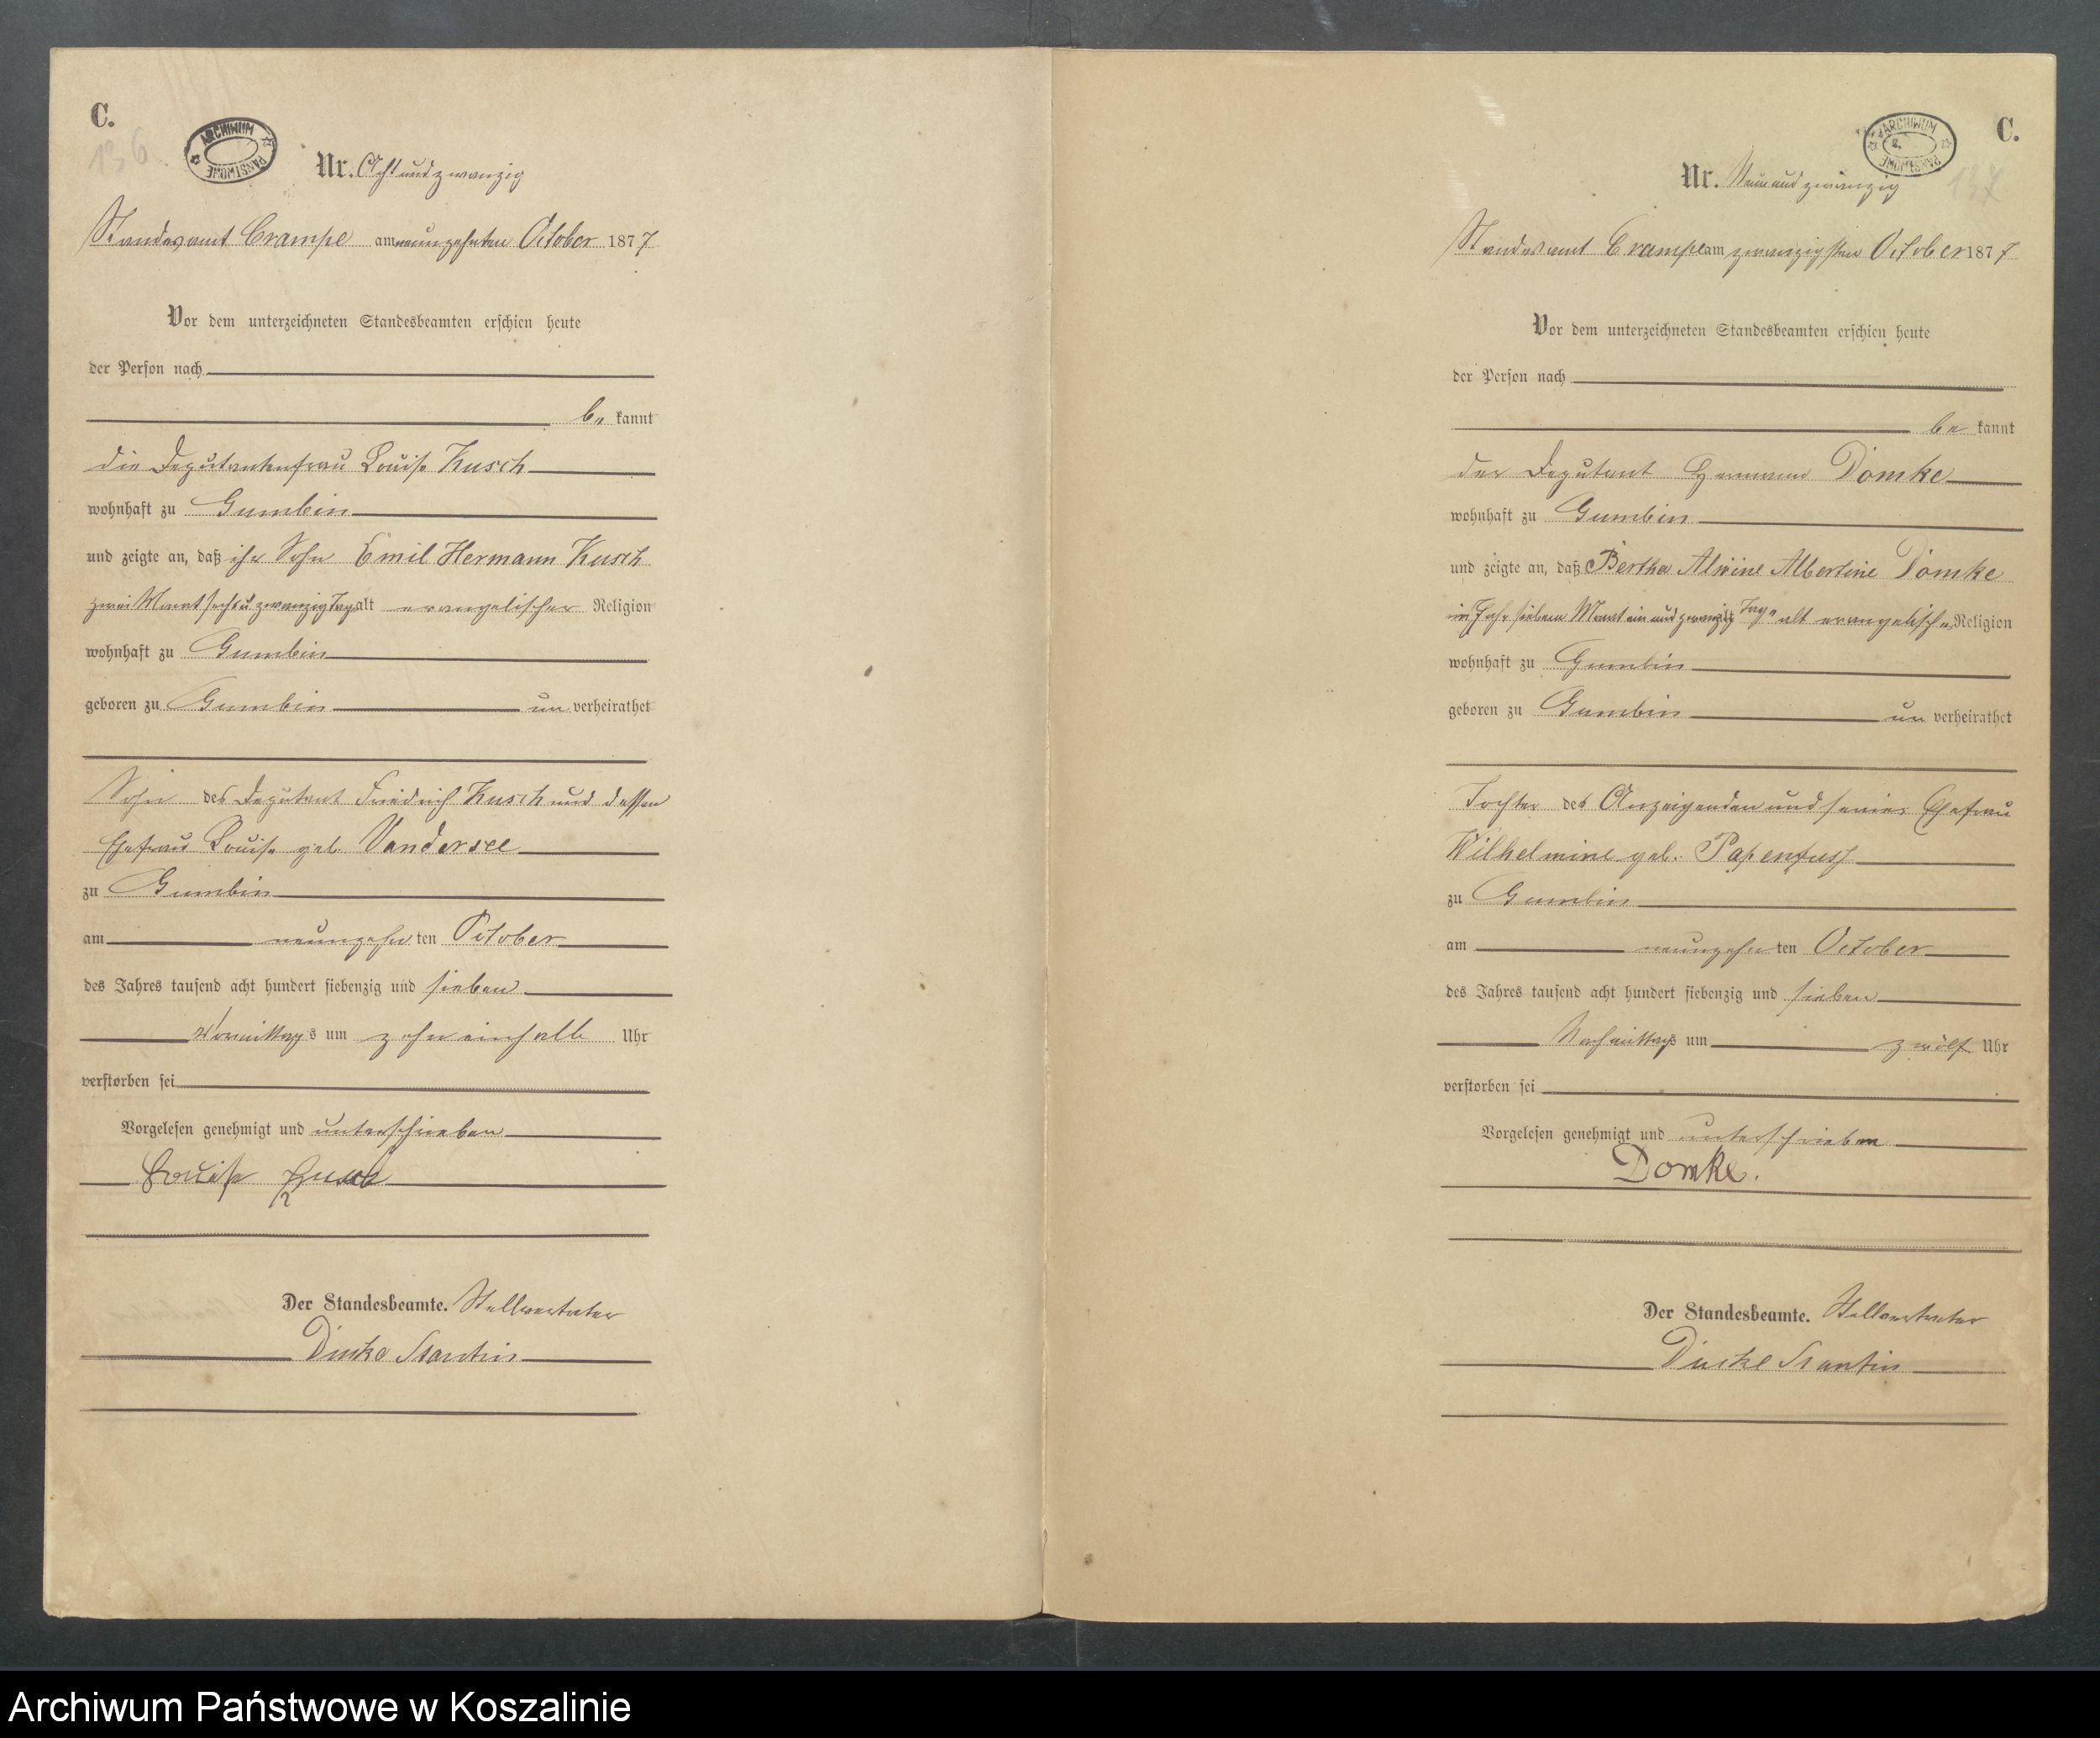 C.
136
ARCHIWUM PAŃSTWOWE
Nr. Acht und zwanzig
Standesamt Crampe am neunzehnten October 1877
Vor dem unterzeichneten Standesbeamten erschien heute
der Person nach
be kannt
die Deputantenfrau Louise Kusch
wohnhaft zu Gumbin
und zeigte an, daß ihr Sohn Emil Hermann Kusch
zwei Monat sechs u zwanzig Tag alt evangelischer Religion
wohnhaft zu Gumbin
geboren zu Gumbin un verheirathet
Sohn des Deputant Friedrich Kusch und dessen
Ehefrau Louise geb. Vandersee
zu Gumbin
am neunzehn ten October
des Jahres tausend acht hundert siebenzig und sieben
Vormittags um zehn einhalb Uhr
verstorben sei
Vorgelesen genehmigt und unterschrieben
Louise Kusch
Der Standesbeamte. Stellvertreter
Dinke Stantin
C.
ARCHIWUM PAŃSTWOWE
137
Nr. Neun und zwanzig
Standesamt Crampe am zwanzigsten October 1877
Vor dem unterzeichneten Standesbeamten erschien heute
der Person nach
be kannt
der Deputant Hermann Domke
wohnhaft zu Gumbin
und zeigte an, daß Bertha Alwine Albertine Domke
ein Jahr sieben Monat ein und zwanzig Tage alt evangelischer Religion
wohnhaft zu Gumbin
geboren zu Gumbin un verheirathet
Tochter des Anzeigenden und seiner Ehefrau
Wilhelmine geb. Papenfuss
zu Gumbin
am neunzehn ten October
des Jahres tausend acht hundert siebenzig und sieben
Nachmittags um zwölf Uhr
verstorben sei
Vorgelesen genehmigt und unterschrieben
Domke.
Der Standesbeamte. Stellvertreter
Dinke Stantin
Archiwum Państwowe w Koszalinie